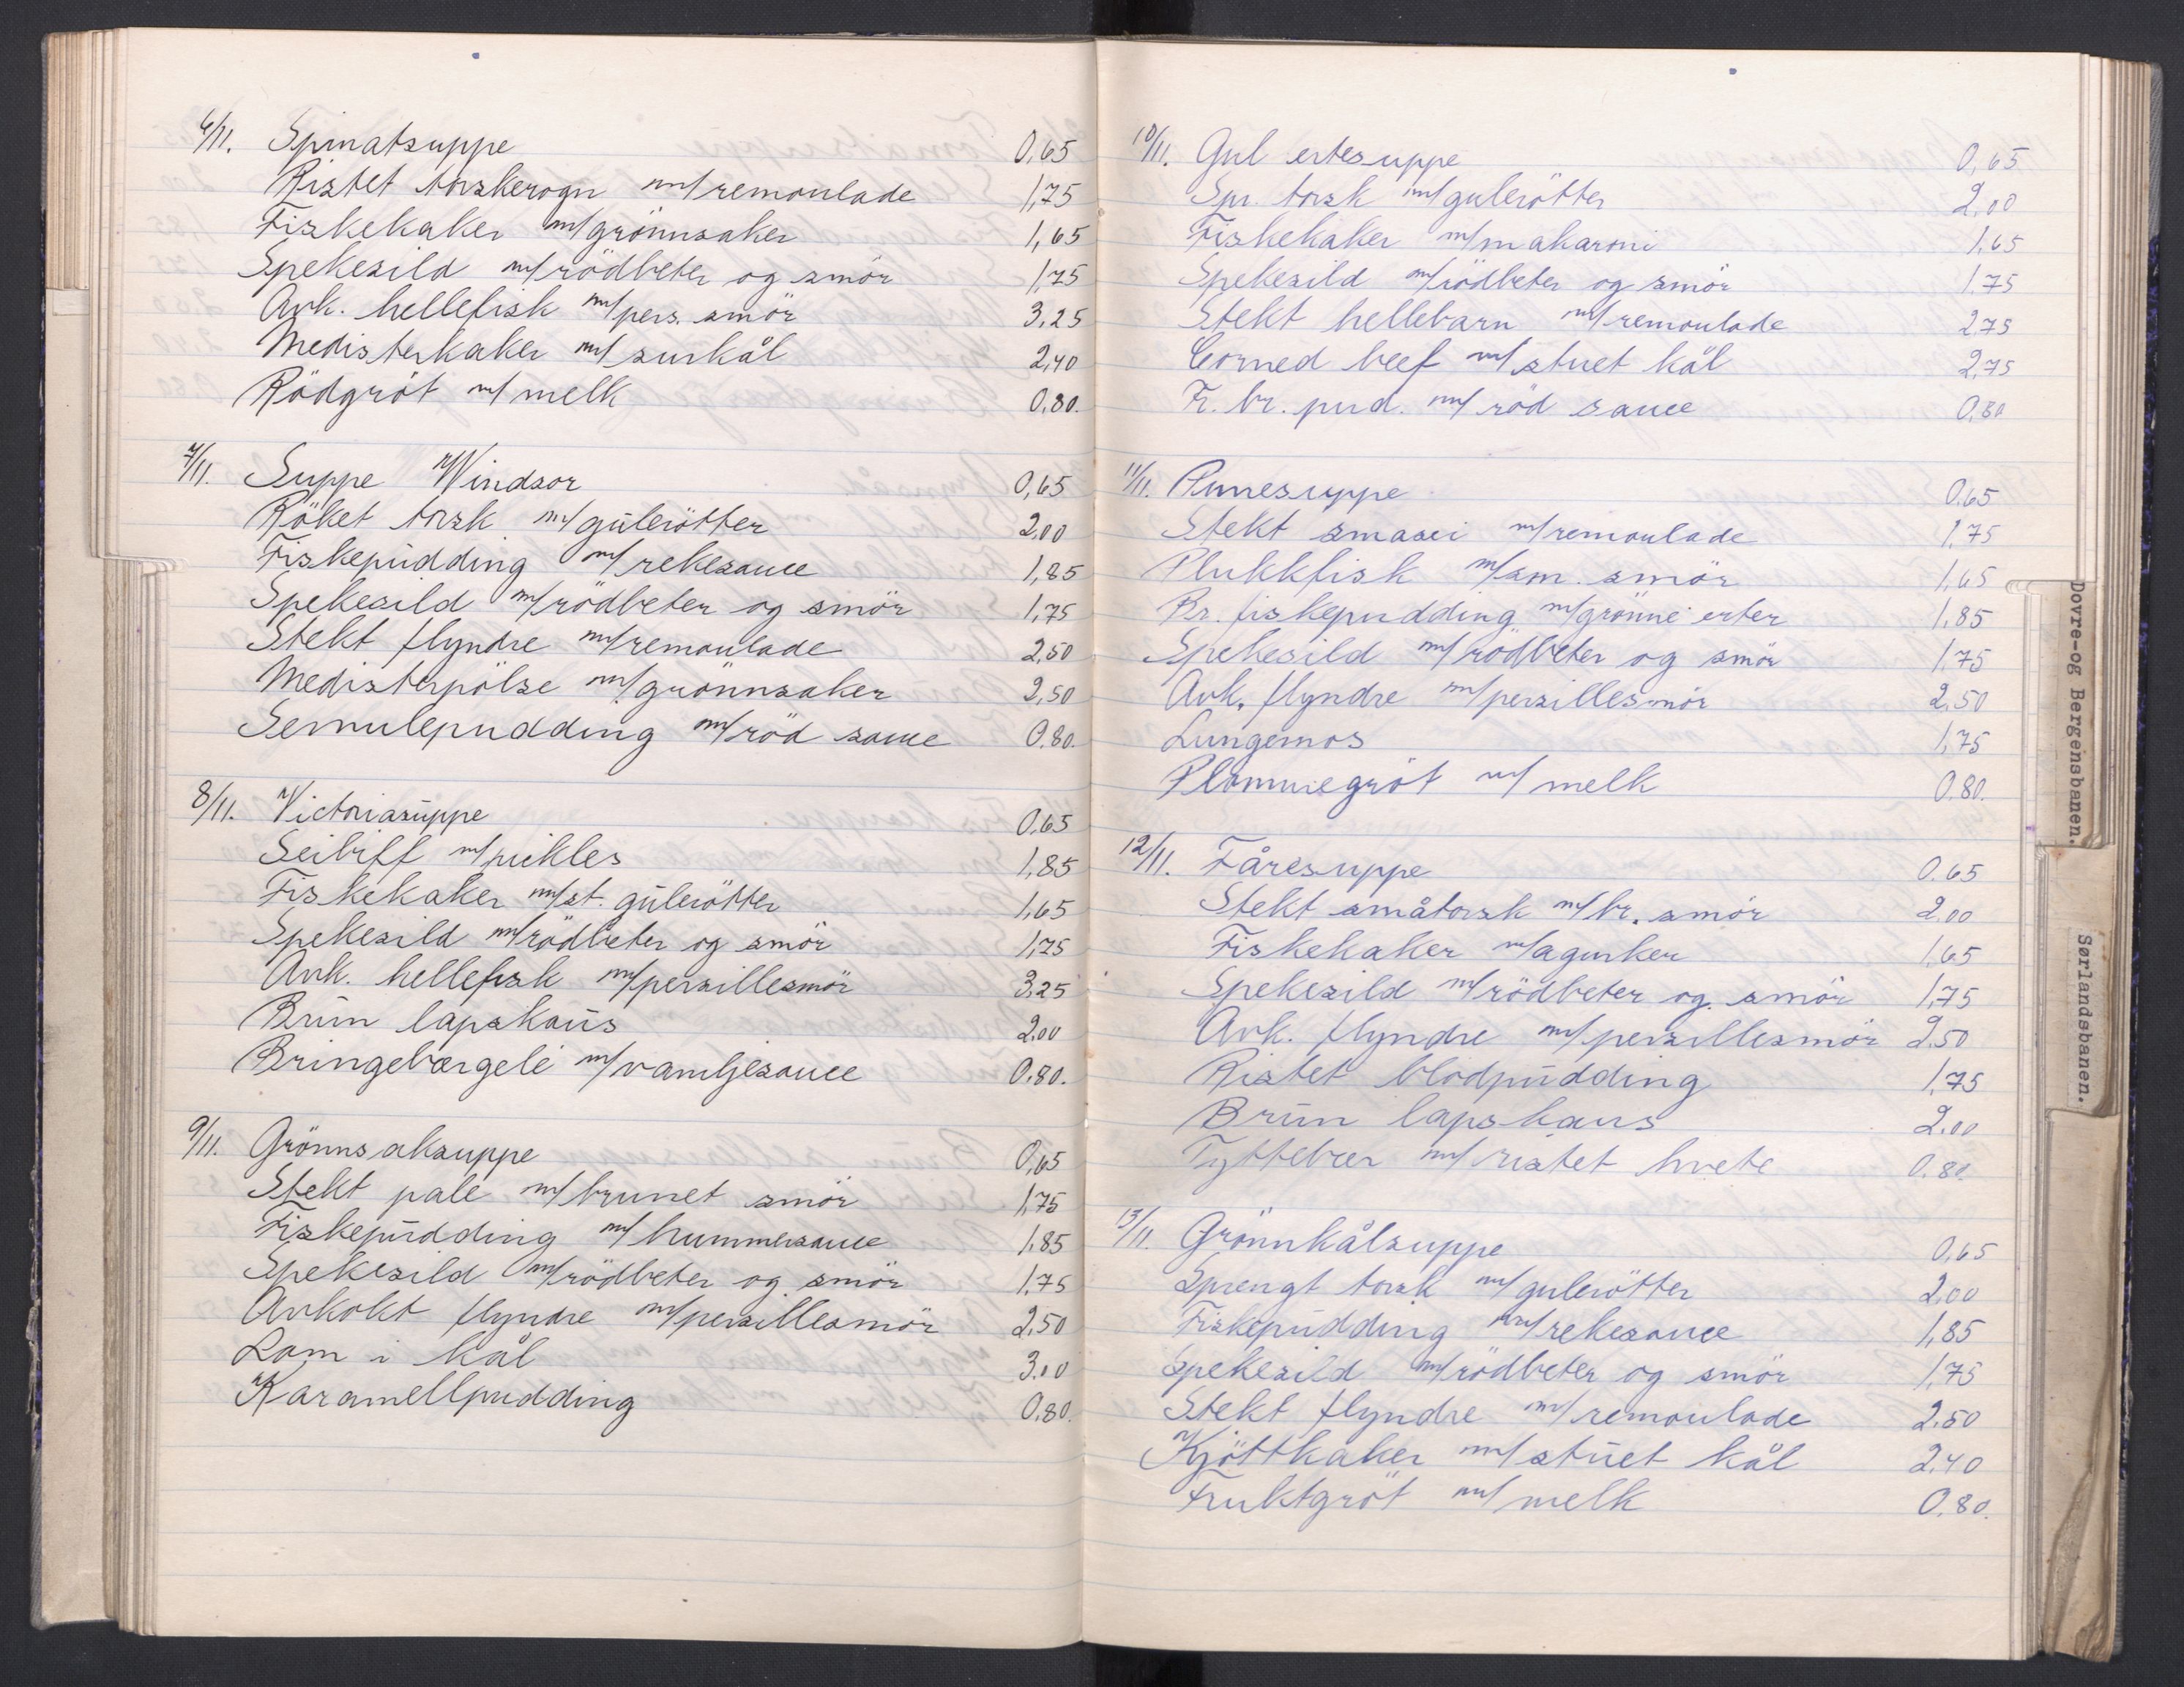 6/11. Spinatsuppe 0,65
Ristet torskerogn m/remoulade 1,75
Fiskekaker m/grönnsaker 1,65
Spekesild m/rödbeter og smör 1,75
Avk. hellefisk m/pers. smör 3,25
Medisterkaker m/surkål 2,40
Rödgröt m/melk 0,80.
7/11. Suppe Windsor 0,65
Röket torsk m/gulerötter 2,00
Fiskepudding m/rekesauce 1,85
Spekesild m/rödbeter og smör 1,75
Stekt flyndre m/remoulade 2,50
Medisterpölse m/grönnsaker 2,50
Semulepudding m/röd sauce 0.80.
8/11. Victoriasuppe 0,65
Seibiff m/pickles 1,85
Fiskekaker m/st. gulerötter 1,65
Spekesild m/rödbeter og smör 1,75
Avk. hellefisk m/persillesmör 3,25
Brun lapskaus 2,00
Bringebærgelé m/vaniljesauce 0.80.
9/11. Grönnsaksuppe 0,65
Stekt pale m/brunet smör 1,75
Fiskepudding m/hummersauce 1.85
Spekesild m/rödbeter og smör 1.75
Avkokt flyndre m/persillesmör 2,50
Lam i kål 3.00
Karamellpudding 0,80.
10/11. Gul ertesuppe 0,65
Spr. torsk m/gulerötter 2,00
Fiskekaker m/makaroni 1,65
Spekesild m/rödbeter og smör 1.75
Stekt hellebarn m/remoulade 2.75
Corned beef m/stuet kål 2,75
Fr. br. pud. m/röd sauce 0,80
11/11. Annesuppe 0.65
Stekt smasei m/remoulade 1,75
Plukkfisk m/sm. smör 1,65
Br. fiskepudding m/grönne erter 1.85
Spekesild m/rödbeter og smör 1,75
Avk. flyndre m/persillesmör 2,50
Lungemos 1,75
Plommegröt m/melk 0.80.
12/11. Fåresuppe 0.65
Stekt småtorsk m/br. smör 2.00
Fiskekaker m/agurker 1,65
Spekesild m/rödbeter og smör 1,75
Avk. flyndre m/persillesmör 2.50
Ristet blodpudding 1,75
Brun lapskaus 2.00
Tyttebær m/ristet hvete 0.80.
13/11. Grönnkålsuppe 0,65
Sprengt torsk m/gulerötter 2,00
Fiskepudding m/rekesauce 1,85
Spekesild m/rödbeter og smör 1,75
Stekt flyndre m/remoulade 2.50
Kjöttkaker m/stuet kål 2.40
Fruktgröt m/melk 0.80.
Dovre-og Bergensbanen.
Sørlandsbanen.